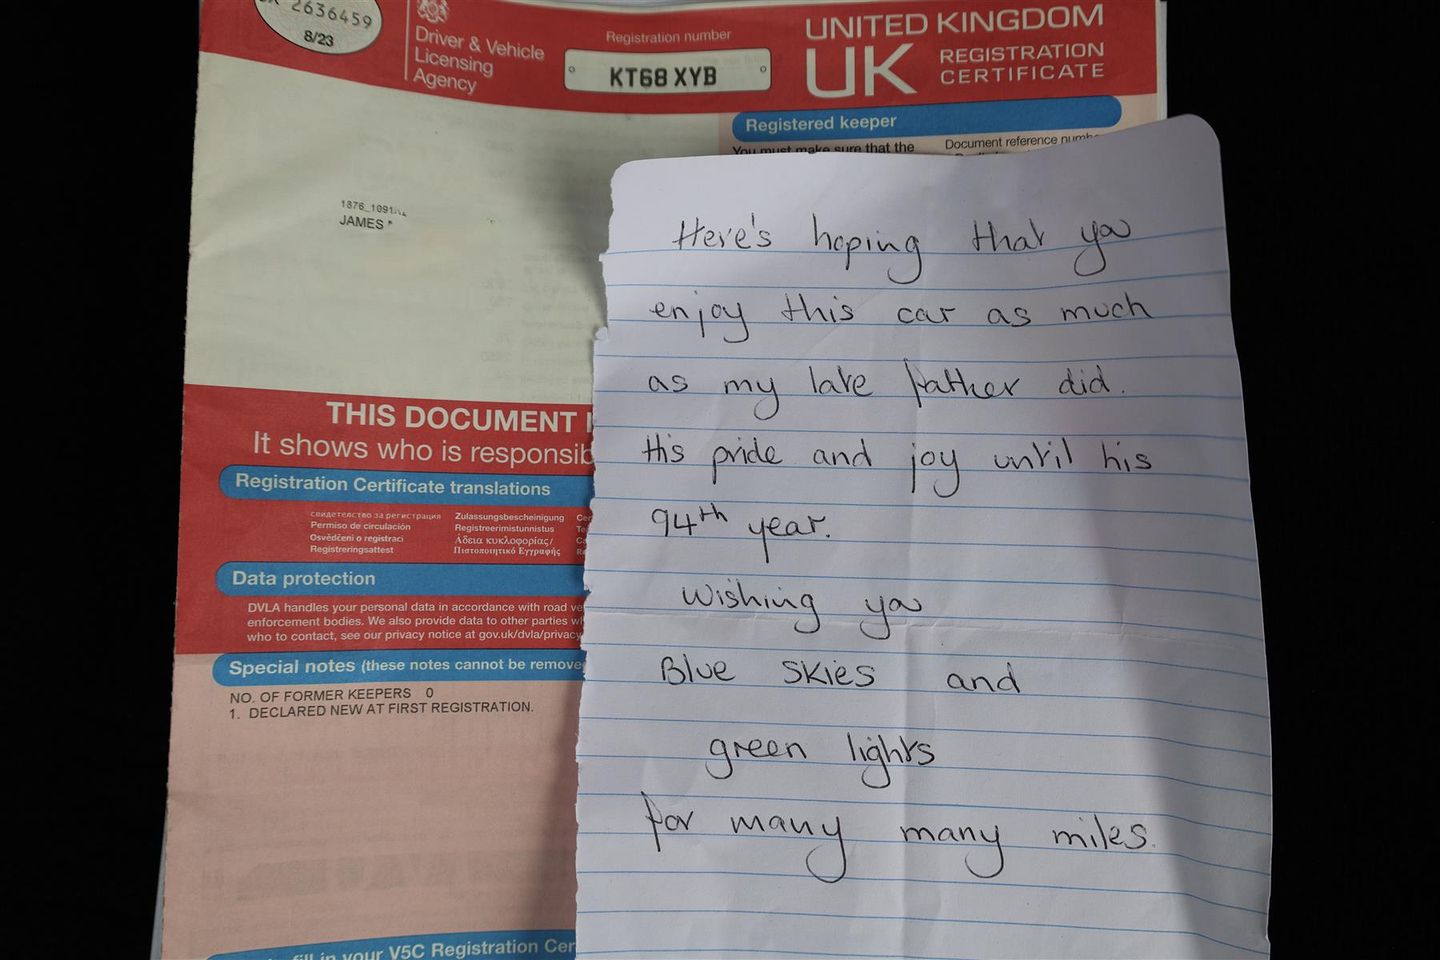 2636459
8/23
Driver & Vehicle
Licensing
Agency
Registration number
KT68 XYB
UNITED KINGDOM
UK
REGISTRATION
CERTIFICATE
Registered keeper
You must make sure that the
Document reference
1876_1091
JAMES
THIS DOCUMENT
It shows who is
Registration Certificate translations
свидетелство за регистрация
Permiso de circulación
Osvědčení o registraci
Registreringsattest
Zulassungsbescheinigung
Registreerimistunnistus
Άδεια κυκλοφορίας/
Πιστοποιητικό Εγγραφής
Data protection
DVLA handles your personal data in accordance with road
enforcement bodies. We also provide data to other parties
who to contact, see our privacy notice at gov.uk/dvla/privacy
Special notes (these notes cannot be
NO. OF FORMER KEEPERS 0
1. DECLARED NEW AT FIRST REGISTRATION.
fill in your V5C Registration
Here's hoping that you
enjoy this car as much
as my late father did.
His pride and joy until his
94th year.
Wishing you
Blue skies and
green lights
for many many miles.